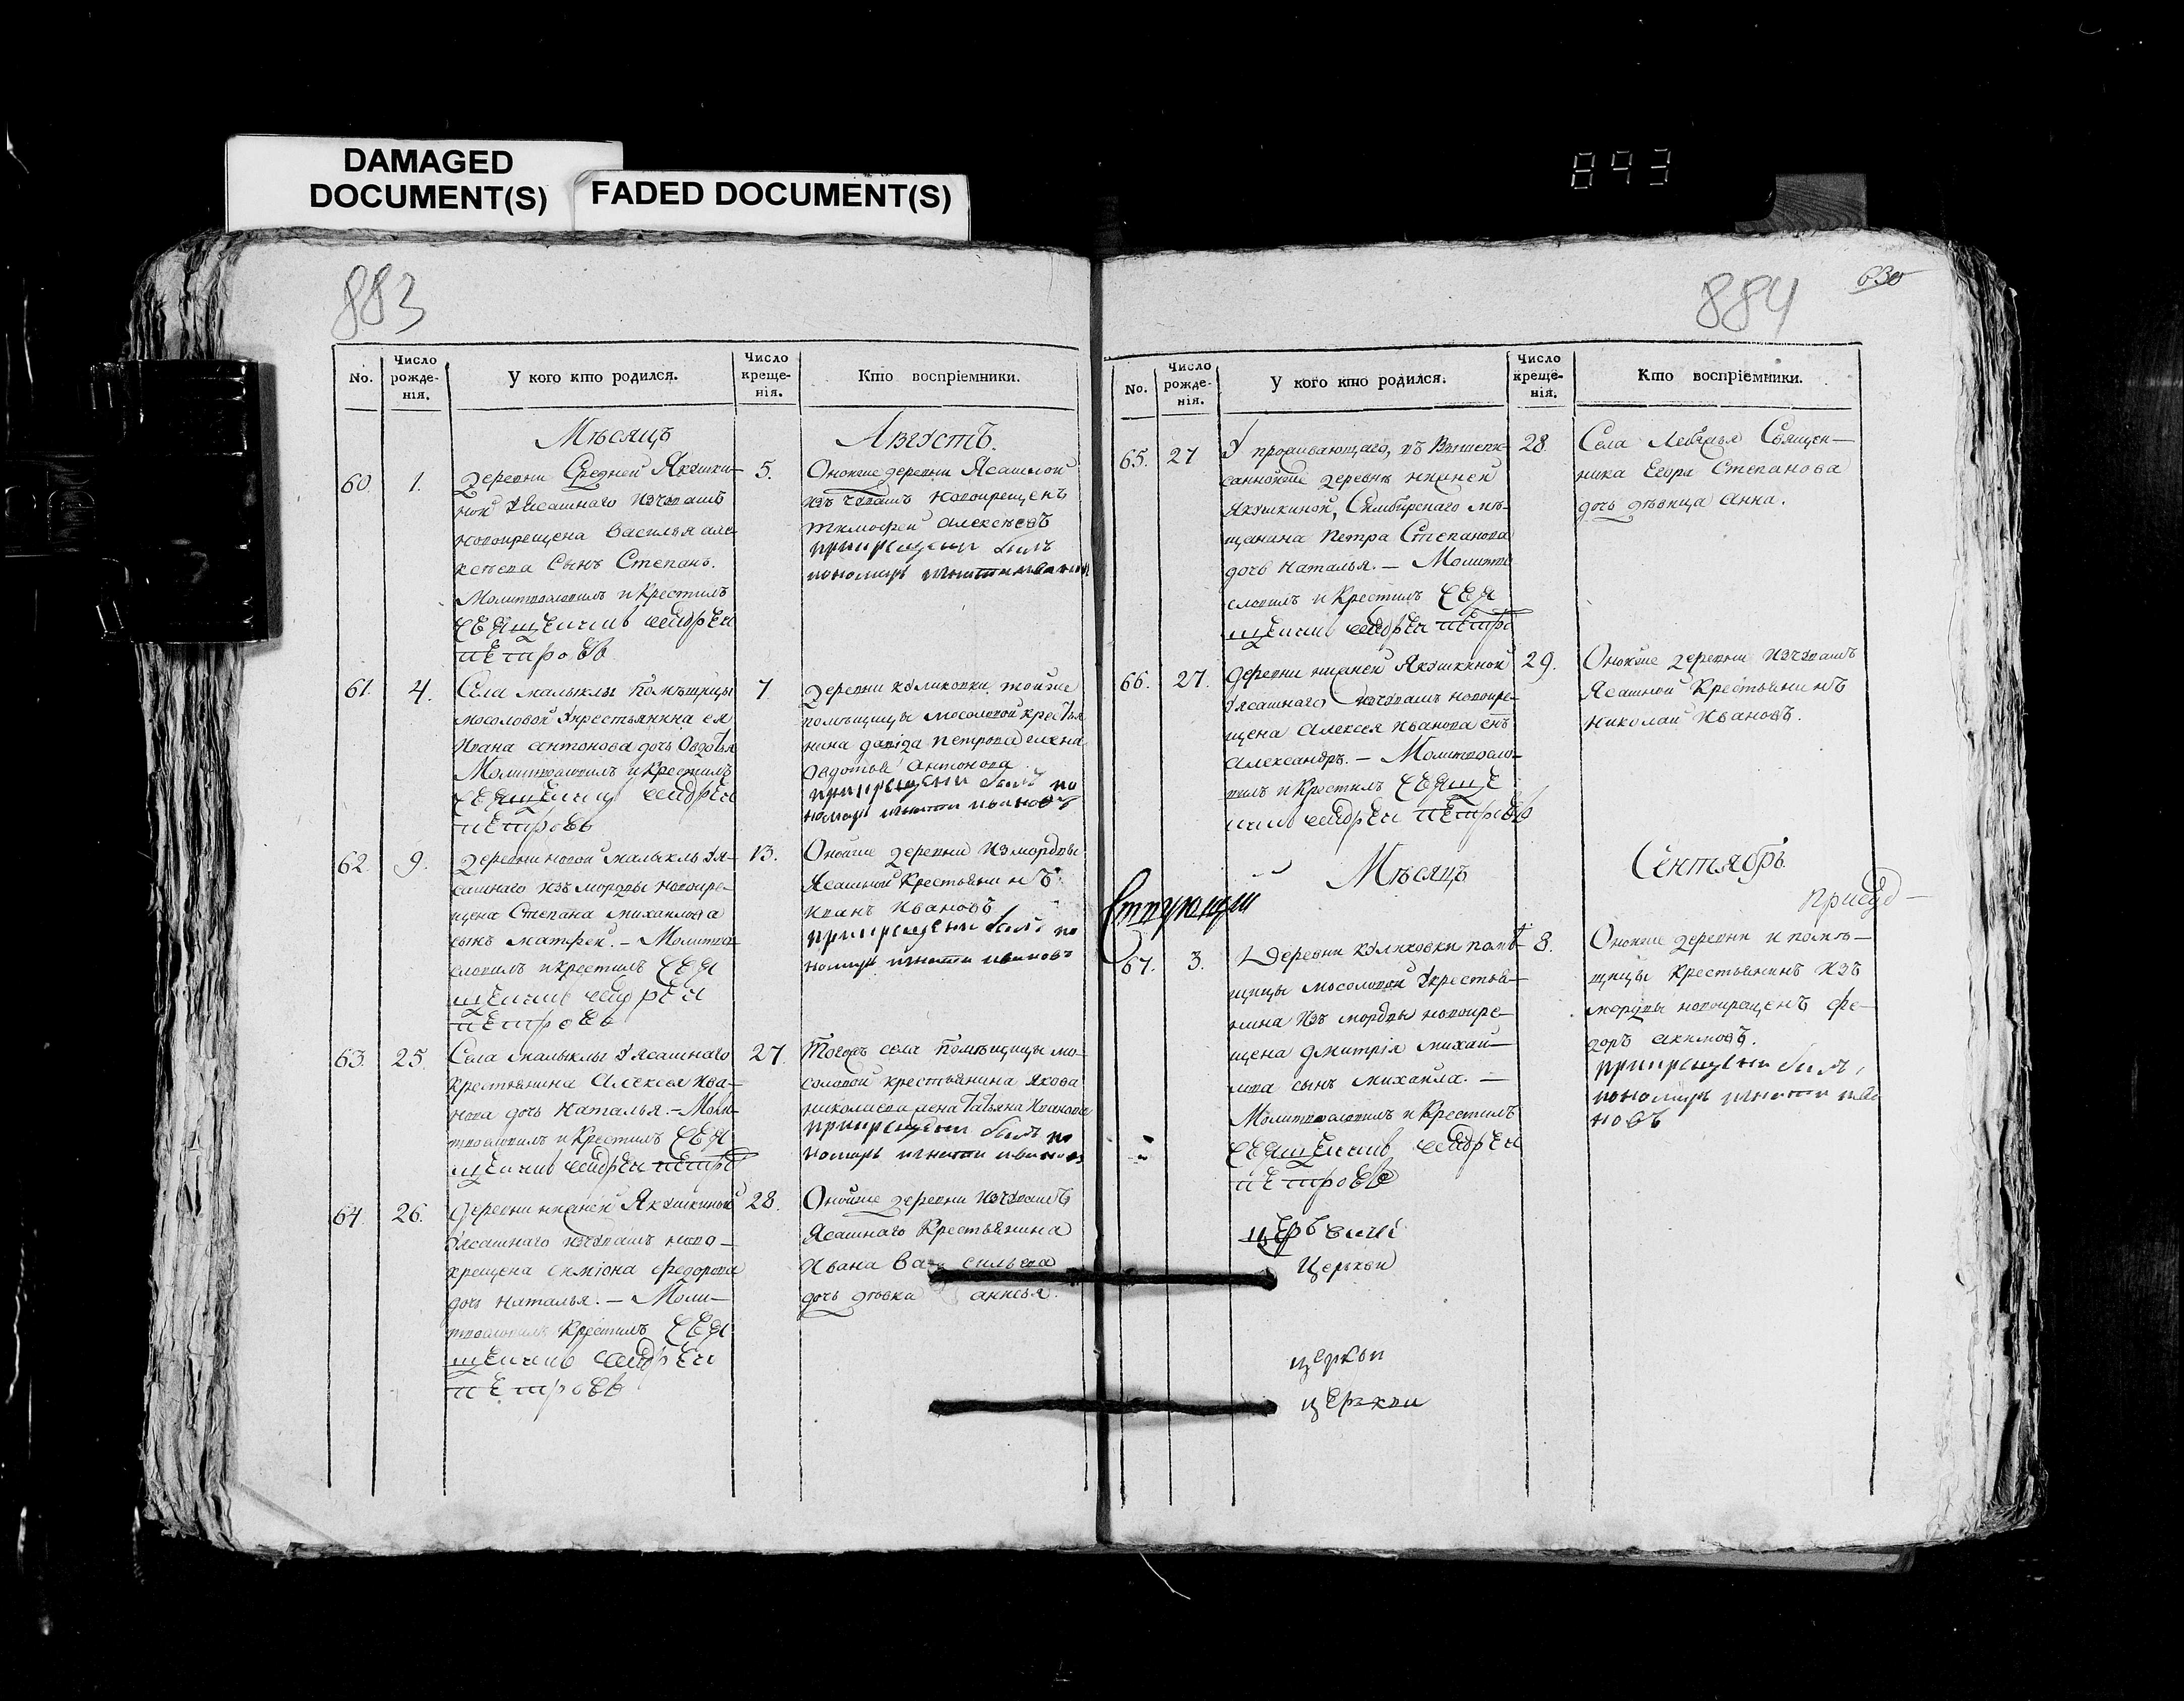 DAMAGED
DOCUMENT(S)
FADED DOCUMENT(S)
893
883
No.
Число рожде-нія.
У кого кто родился.
Число креще-нія.
Кто воспріемники.
Мѣсяцъ
Августъ.
60. 1.
Деревни Средней Якушки-
ной У Ясашнаго изчувашъ
новокрещена Василья але-
ксѣева Сынъ Степанъ.
Молитвословилъ и Крестилъ
священникъ андрей
петровъ
5.
Оной же деревни Ясашной
изъ чувашъ новокрещенъ
тимофей алексѣевъ
прикрещении былъ
пономарь игнатей иванов
61. 4.
Села малыклы помѣщицы
мосоловой У крестьянина ея
Ивана антонова дочь Овдотья
Молитвословилъ и Крестилъ
священникъ андрей
петровъ
7.
Деревни куликовки тойже
помѣщицы мосоловой крестья
нина давида петрова жена
Овдотья антонова
прикрещении былъ по
номарь игнатей ивановъ
62. 9.
Деревни новой малыклы У я-
сашнаго изъ мордвы новокре-
щена Степана михаилова
сынъ матфей. - Молитво
словилъ и крестилъ свя
щенникъ андрей
петровъ
13.
Оной же деревни Из мордвы
Ясашной Крестьянинъ
иванъ ивановъ
прикрещении былъ по
номарь игнатей ивановъ
63. 25.
Села малыклы У ясашнаго
крестьянина Алексея ива-
нова дочь Наталья. - Моли-
твословилъ и Крестилъ свя
щенникъ андрей петро
27.
Тогожъ села помѣщицы мо-
соловой крестьянина якова
николаева жена татьяна Иванова
прикрещении былъ по
номарь игнатей ивановъ
64. 26.
Деревни нижней Якушкиной
У ясашнаго изчувашъ ново-
крещена симіона федорова
дочь наталья. - Моли-
твословилъ Крестилъ свя
щенникъ андрей
петровъ
28.
Оной же деревни Изчувашъ
Ясашнаго Крестьянина
Ивана Васильева
дочь дѣвка
884
630
No.
Число рожде-нія.
У кого кто родился.
Число креще-нія.
Кто воспріемники.
65. 27
У проживающаго, въ Вышепи-
санной же деревнѣ нижней
якушкиной, Симбирскаго мѣ-
щанина Петра Степанова
дочь наталья. - Молитво
словилъ и Крестилъ свя
щенникъ андрей петро
28.
Села Лебяжья Священ-
ника Егора Степанова
дочь дѣвица Анна.
66. 27.
Деревни нижней Якушкиной
У ясашнаго изчувашъ новокре-
щена Алексея иванова снъ
александръ. - Молитвосло-
вилъ и Крестилъ свяще
никъ андрей петровъ
29.
Оной же деревни изчувашъ
Ясашной Крестьянинъ
николай ивановъ.
Мѣсяцъ
Сентябрь
67. 3.
Деревни куликовки помѣ-
щицы мосоловой У крестья-
нина изъ мордвы новокре-
щена дмитрія михаи-
лова сынъ михаила. -
Молитвословилъ и Крестилъ
священникъ андрей
петровъ
8.
Оной же деревни и помѣ-
щицы крестьянинъ изъ
мордвы новокрещенъ фе-
доръ акимовъ.
прикрещении былъ
пономарь игнатей ива
новъ
Церькви
церкви
церкви